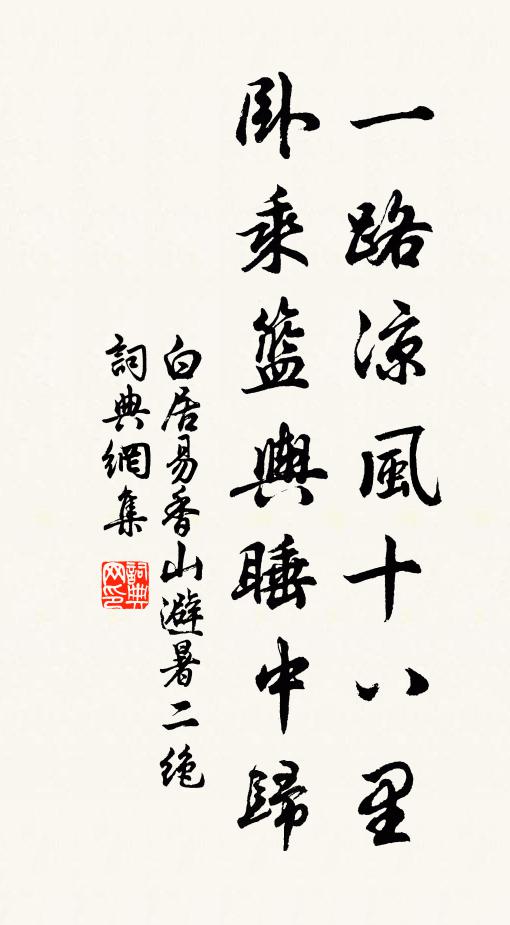 一路涼風十八里
卧乘籃輿睡中歸
白居易香山避暑二绝
詞典網集
詞典网印